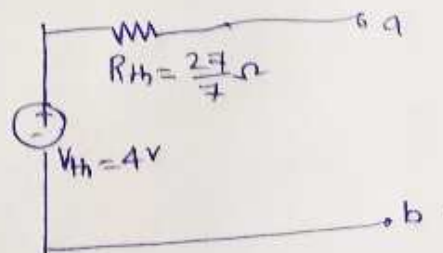 a
Rth = 27/7 Ω
+
-
Vth = 4V
b